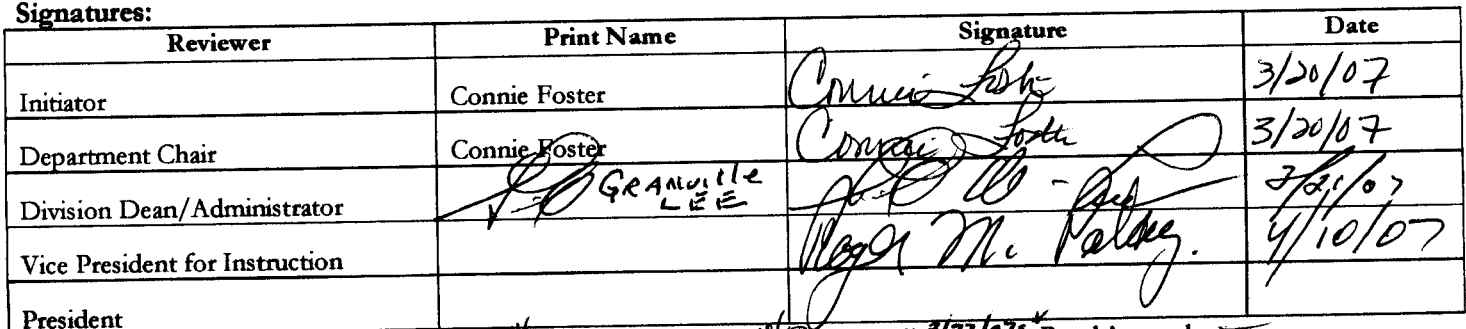 Signatures:
Reviewer Print Name Signature Date
Initiator Connie Foster Connie Foster 3/20/07
Department Chair Connie Foster Connie Foster 3/20/07
Division Dean/Administrator GRANVILLE LEE 3/21/07
Vice President for Instruction Roger M. 4/10/07
President